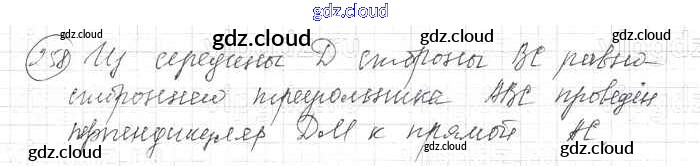 gdz.cloud
258 Из середины D стороны BC равно-
стороннего треугольника ABC проведён
перпендикуляр DM к прямой AC
gdz.cloud gdz.cloud
gdz.cloud gdz.cloud
gdz.cloud gdz.cloud
gdz.cloud gdz.cloud